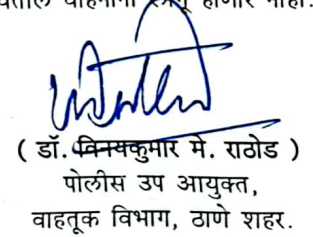 वाहनांना लागू होणार नाही.
( डॉ. विनयकुमार मे. राठोड )
पोलीस उप आयुक्त,
वाहतूक विभाग, ठाणे शहर.